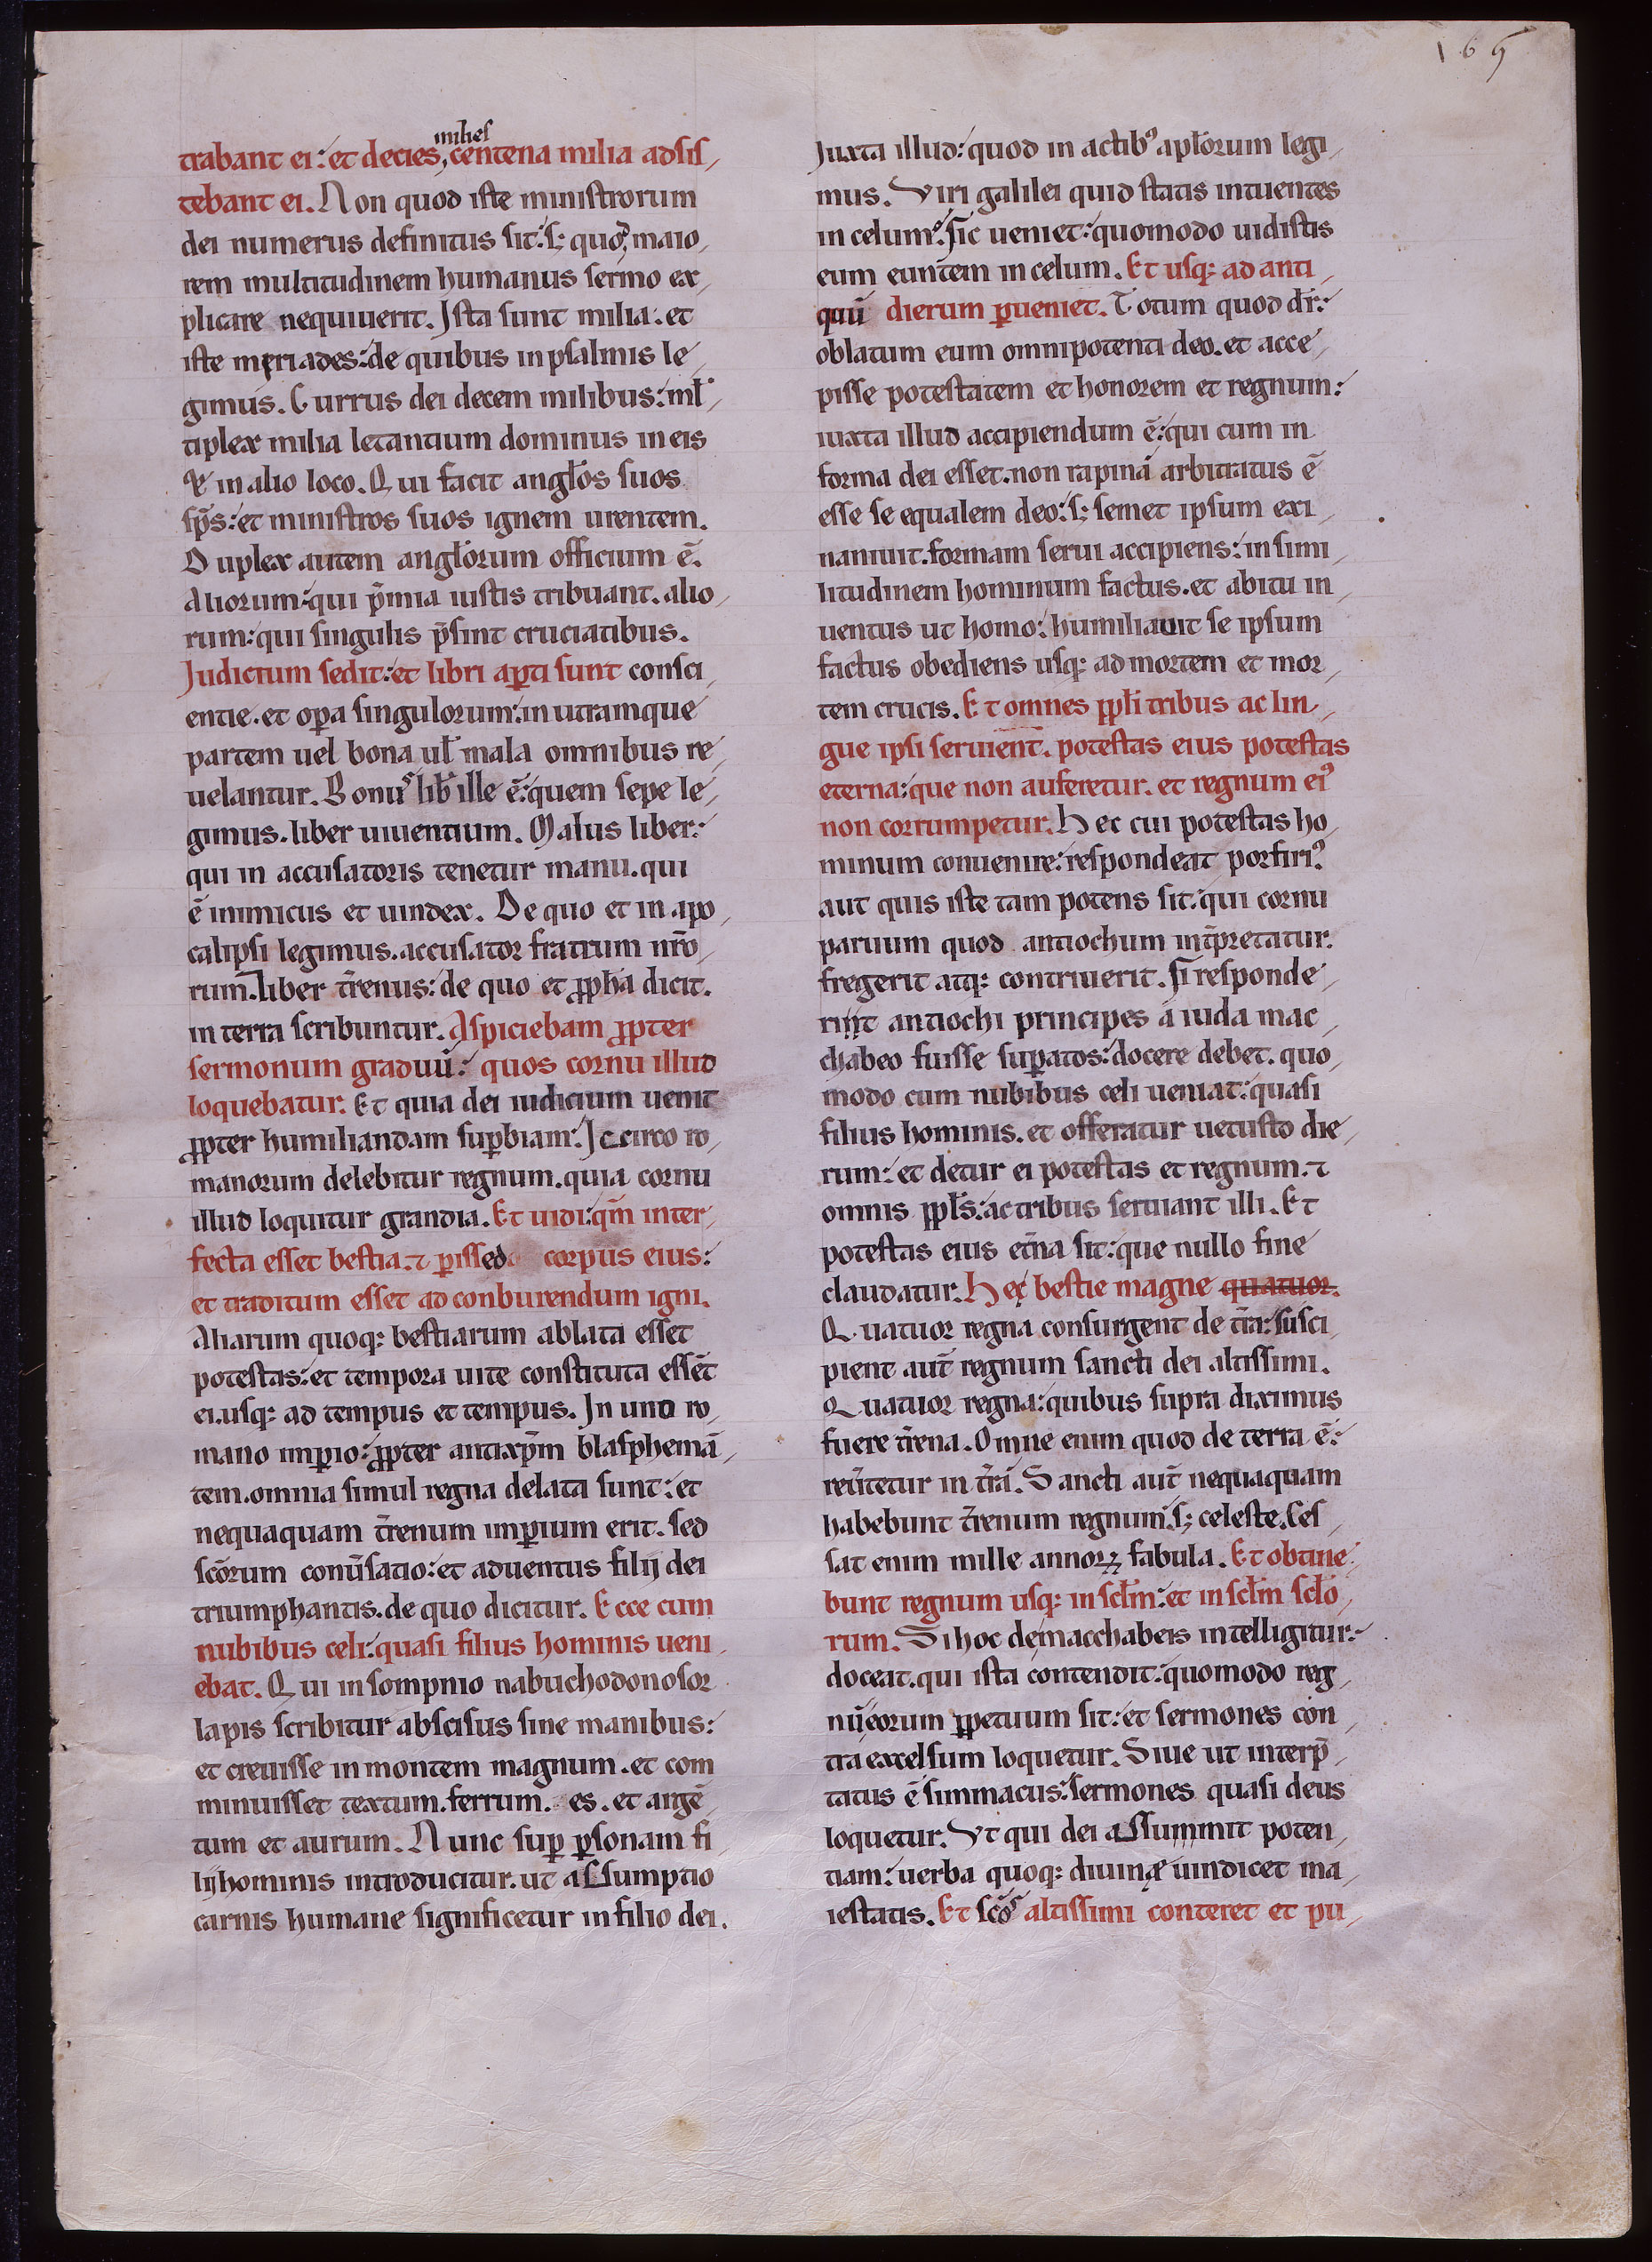 165
milies
trabant ei: et decies, centena milia adsis,
tebant ei. Non quod iste ministrorum
dei numerus definitus sit: s; quo maio,
rem multitudinem humanus sermo ex,
plicare nequiuerit. Ista sunt milia. et
iste myriades: de quibus in psalmis le,
gimus. Currus dei decem milibus: ml̃,
tiplex milia letantium dominus in eis
& in alio loco. Qui facit angl̃os suos
sp̃s: et ministros suos ignem urentem.
Duplex autem angl̃orum officium ẽ.
Aliorum: qui p̃mia iustis tribuant. alio,
rum: qui singulis p̃sint cruciatibus.
Judicium sedit: et libri ap̱ti sunt consci,
entie. et op̱a singulorum: in utramque
partem uel bona ul̃ mala omnibus re,
uelantur. Bonuˢ lib̃ ille ẽ: quem sepe le,
gimus. liber uiuentium. Malus liber:
qui in accusatoris tenetur manu. qui
ẽ inimicus et uindex. De quo et in apo,
calipsi legimus. accusator fratrum nr̃o,
rum. liber t̃renus: de quo et ꝓph̃a dicit.
in terra scribuntur. Aspiciebam ꝓpter
sermonum graduũ: quos cornu illud
loquebatur. Et quia dei iudicium uenit
ꝓpter humiliandam sup̱biam: Iccirco ro,
manorum delebitur regnum. quia cornu
illud loquitur grandia. Et uidi: qm̃ inter,
fecta esset bestia. ⁊ p̱issed corpus eius:
et traditum esset ad conburendum igni.
Aliarum quoq; bestiarum ablata esset
potestas: et tempora uite constituta essẽt
ei. usq; ad tempus et tempus. In uno ro,
mano imp̱io: ꝓpter antixp̃m blasphemã,
tem. omnia simul regna delata sunt: et
nequaquam t̃renum imp̱ium erit. sed
sc̃orum conũsatio: et aduentus filij dei
triumphantis. de quo dicitur. Ecce cum
nubibus celi: quasi filius hominis ueni,
ebat. Qui in sompnio nabuchodonosor
lapis scribitur abscisus sine manibus:
et creuisse in montem magnum. et com
minuisset textum. ferrum. es. et argẽ,
tum et aurum. Nunc sup̱ p̱sonam fi,
lij hominis introducitur. ut assumptio
carnis humane significetur in filio dei.
Juxta illud: quod in actib⁹ apl̃orum legi,
mus. Viri galilei quid statis intuentes
in celum? sic ueniet: quomodo uidistis
eum euntem in celum. Et usq; ad anti,
quũ dierum p̱ueniet. Totum quod dr̃:
oblatum eum omnipotenti deo. et acce,
pisse potestatem et honorem et regnum:
iuxta illud accipiendum ẽ: qui cum in
forma dei esset. non rapinã arbitratus ẽ
esse se equalem deo: s; semet ipsum exi,
naniuit. formam serui accipiens: in simi,
litudinem hominum factus. et abitu in,
uentus ut homo: humiliauit se ipsum
factus obediens usq; ad mortem et mor,
tem crucis. Et omnes ppl̃i tribus ac lin,
gue ipsi seruient. potestas eius potestas
eterna: que non auferetur. et regnum ei⁹
non corrumpetur. Hec cui potestas ho,
minum conuenire: respondeat porfiri⁹
aut quis iste tam potens sit: qui cornu
paruum quod antiochum int̃pretatur.
fregerit atq; contriuerit. si responde,
rint antiochi principes a iuda mac,
chabeo fuisse sup̱atos: docere debet. quo,
modo cum nubibus celi ueniat: quasi
filius hominis. et offeratur uetusto die,
rum: et detur ei potestas et regnum. ⁊
omnis ppl̃s: ac tribus seruiant illi. Et
potestas eius et̃na sit: que nullo fine
claudatur. Hec bestie magne quatuor.
Quatuor regna consurgent de t̃ra: susci,
pient aut̃ regnum sancti dei altissimi.
Quatuor regna: quibus supra diximus
fuere t̃rena. Omne enim quod de terra ẽ:
reũtetur in t̃rã. Sancti aut̃ nequaquam
habebunt t̃renum regnum: s; celeste. Ces,
sat enim mille annoꝝ fabula. Et obtine,
bunt regnum usq; in scl̃m: et in scl̃m scl̃o,
rum. Si hoc de macchabeis intelligitur:
doceat. qui ista contendit: quomodo reg,
nũ eorum ꝑpetuum sit: et sermones con,
tra excelsum loquetur. Siue ut interp̃,
tatus ẽ simmacus: sermones quasi deus
loquetur. Vt qui dei assummit poten,
tiam: uerba quoq; diuinæ uindicet ma,
iestatis. Et sc̃oˢ altissimi conteret et pu,